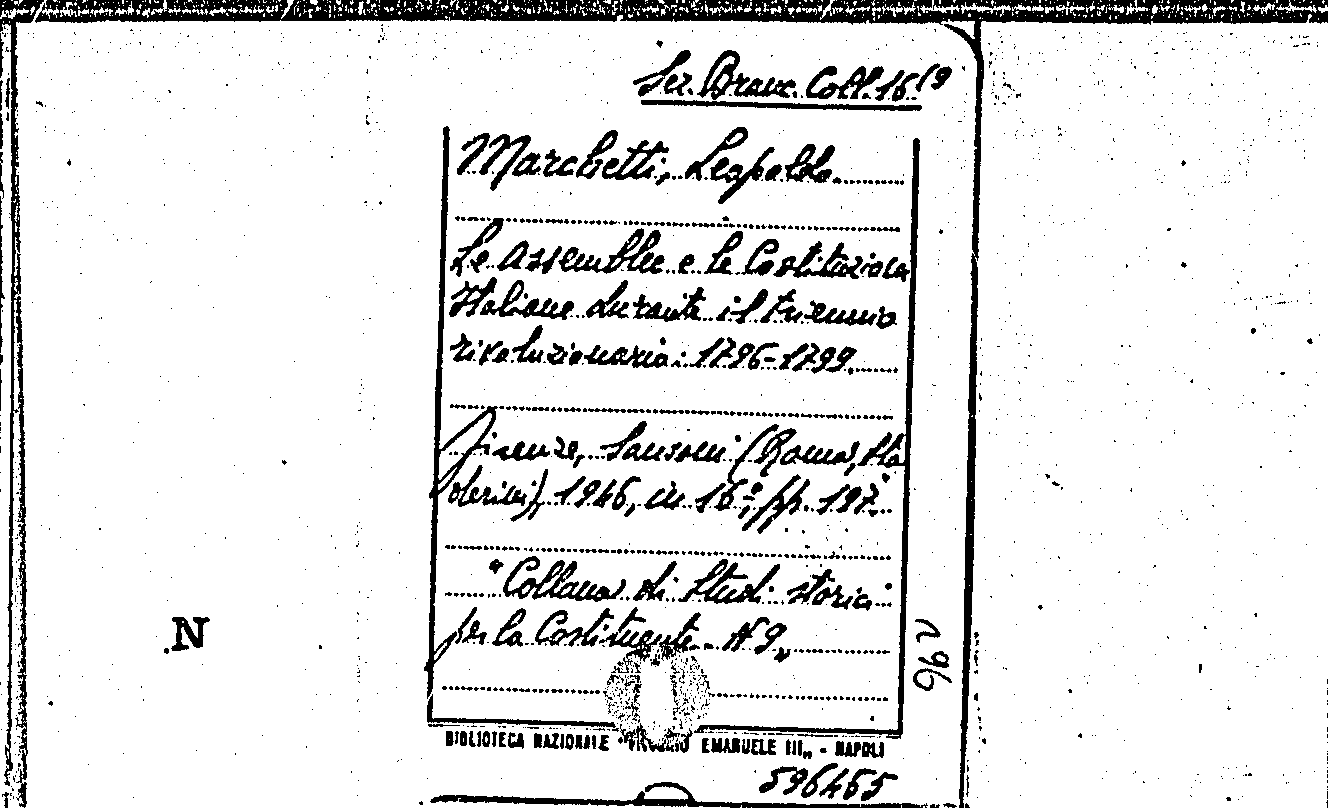 Sez. Branc. Coll. 16(9
Marchetti, Leopoldo.
Le Assemblee e le Costituzioni
Italiane durante il triennio
rivoluzionario: 1796-1799.
Firenze, Sansoni (Roma, Sta
derini), 1946, in 16°, pp. 197.
"Collana di Studi storici
per la Costituente. N 9„
N
296
BIBLIOTECA NAZIONALE EMANUELE III„ - NAPOLI
596455